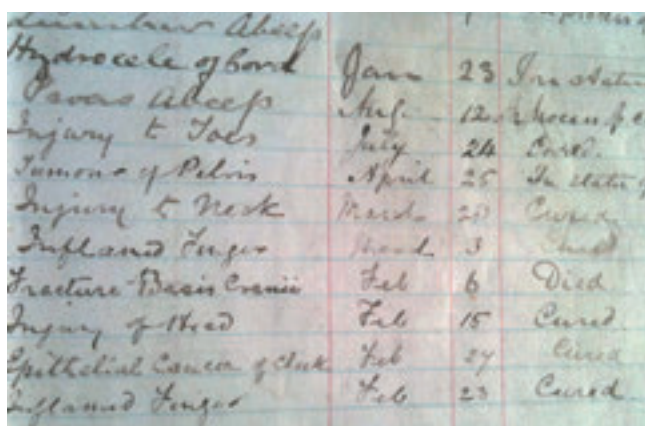 Abcess
Hydrocele of Cord Jan 23 In statu
Psoas Abcess Aug. 12
Injury to Toes July 24 Cured.
Tumour of Pelvis April 25 In statu q
Injury to Neck March 20 Cured
Inflamed Finger March 3 Cured
Fracture Basis Cranii Feb 6 Died
Injury of Head Feb 15 Cured
Epithelial Cancer of Cheek Feb 27 Cured
Inflamed Finger Feb 23 Cured.